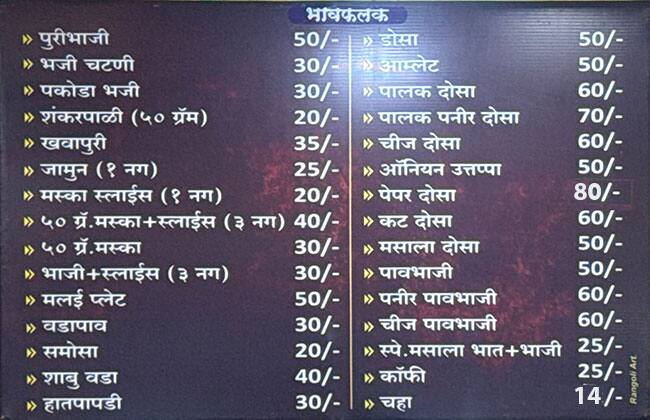 भावफलक
» पुरीभाजी 50/-
» भजी चटणी 30/-
» पकोडा भजी 30/-
» शंकरपाळी (५० ग्रॅम) 20/-
» खवापुरी 35/-
» जामुन (१ नग) 25/-
» मस्का स्लाईस (१ नग) 20/-
» ५० ग्रॅ.मस्का+स्लाईस (३ नग) 40/-
» ५० ग्रॅ.मस्का 30/-
» भाजी+स्लाईस (३ नग) 30/-
» मलई प्लेट 50/-
» वडापाव 30/-
» समोसा 20/-
» शाबु वडा 40/-
» हातपापडी 30/-
» डोसा 50/-
» आम्लेट 50/-
» पालक दोसा 60/-
» पालक पनीर दोसा 70/-
» चीज दोसा 60/-
» ऑनियन उत्तप्पा 50/-
» पेपर दोसा 80/-
» कट दोसा 60/-
» मसाला दोसा 50/-
» पावभाजी 50/-
» पनीर पावभाजी 60/-
» चीज पावभाजी 60/-
» स्पे.मसाला भात+भाजी 25/-
» कॉफी 25/-
» चहा 14/-
Rangoli Art.